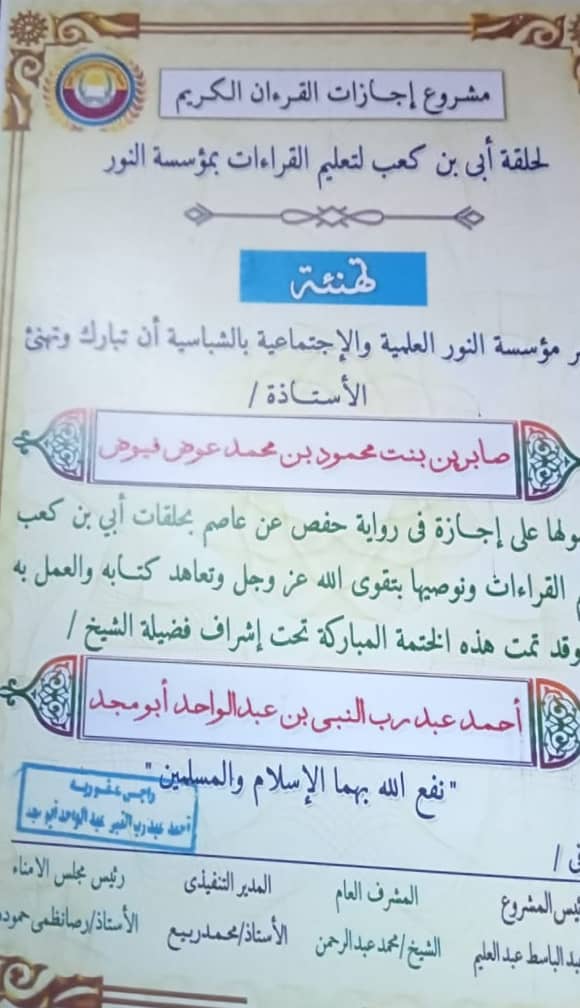 مشروع إجازات القرءان الكريم
لحلقة أبى بن كعب لتعليم القراءات بمؤسسة النور
تهنئة
مؤسسة النور العلمية والإجتماعية بالشباسية أن تبارك وتهنئ
الأستاذة /
صابرين بنت محمود بن محمد عوض فيوض
ولها على إجازة فى رواية حفص عن عاصم بحلقات أبي بن كعب
القراءات ونوصيها بتقوى الله عز وجل وتعاهد كتابه والعمل به
وقد تمت هذه الختمة المباركة تحت إشراف فضيلة الشيخ /
أحمد عبد رب النبى بن عبدالواحد أبو مجد
"نفع الله بهما الإسلام والمسلمين"
راجى عفو ربه
أحمد عبد رب النبى عبد الواحد أبو مجد
فى /
ئيس المشروع المشرف العام المدير التنفيذى رئيس مجلس الامناء
بد الباسط عبد العليم الشيخ/محمد عبد الرحمن الأستاذ/محمد ربيع الأستاذ/رضا نظمى حموده